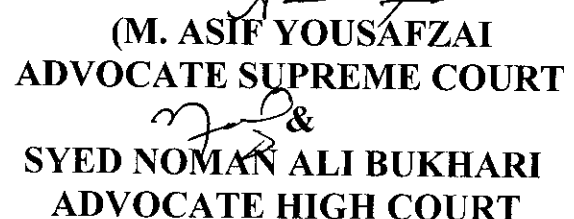 (M. ASIF YOUSAFZAI
ADVOCATE SUPREME COURT
&
SYED NOMAN ALI BUKHARI
ADVOCATE HIGH COURT